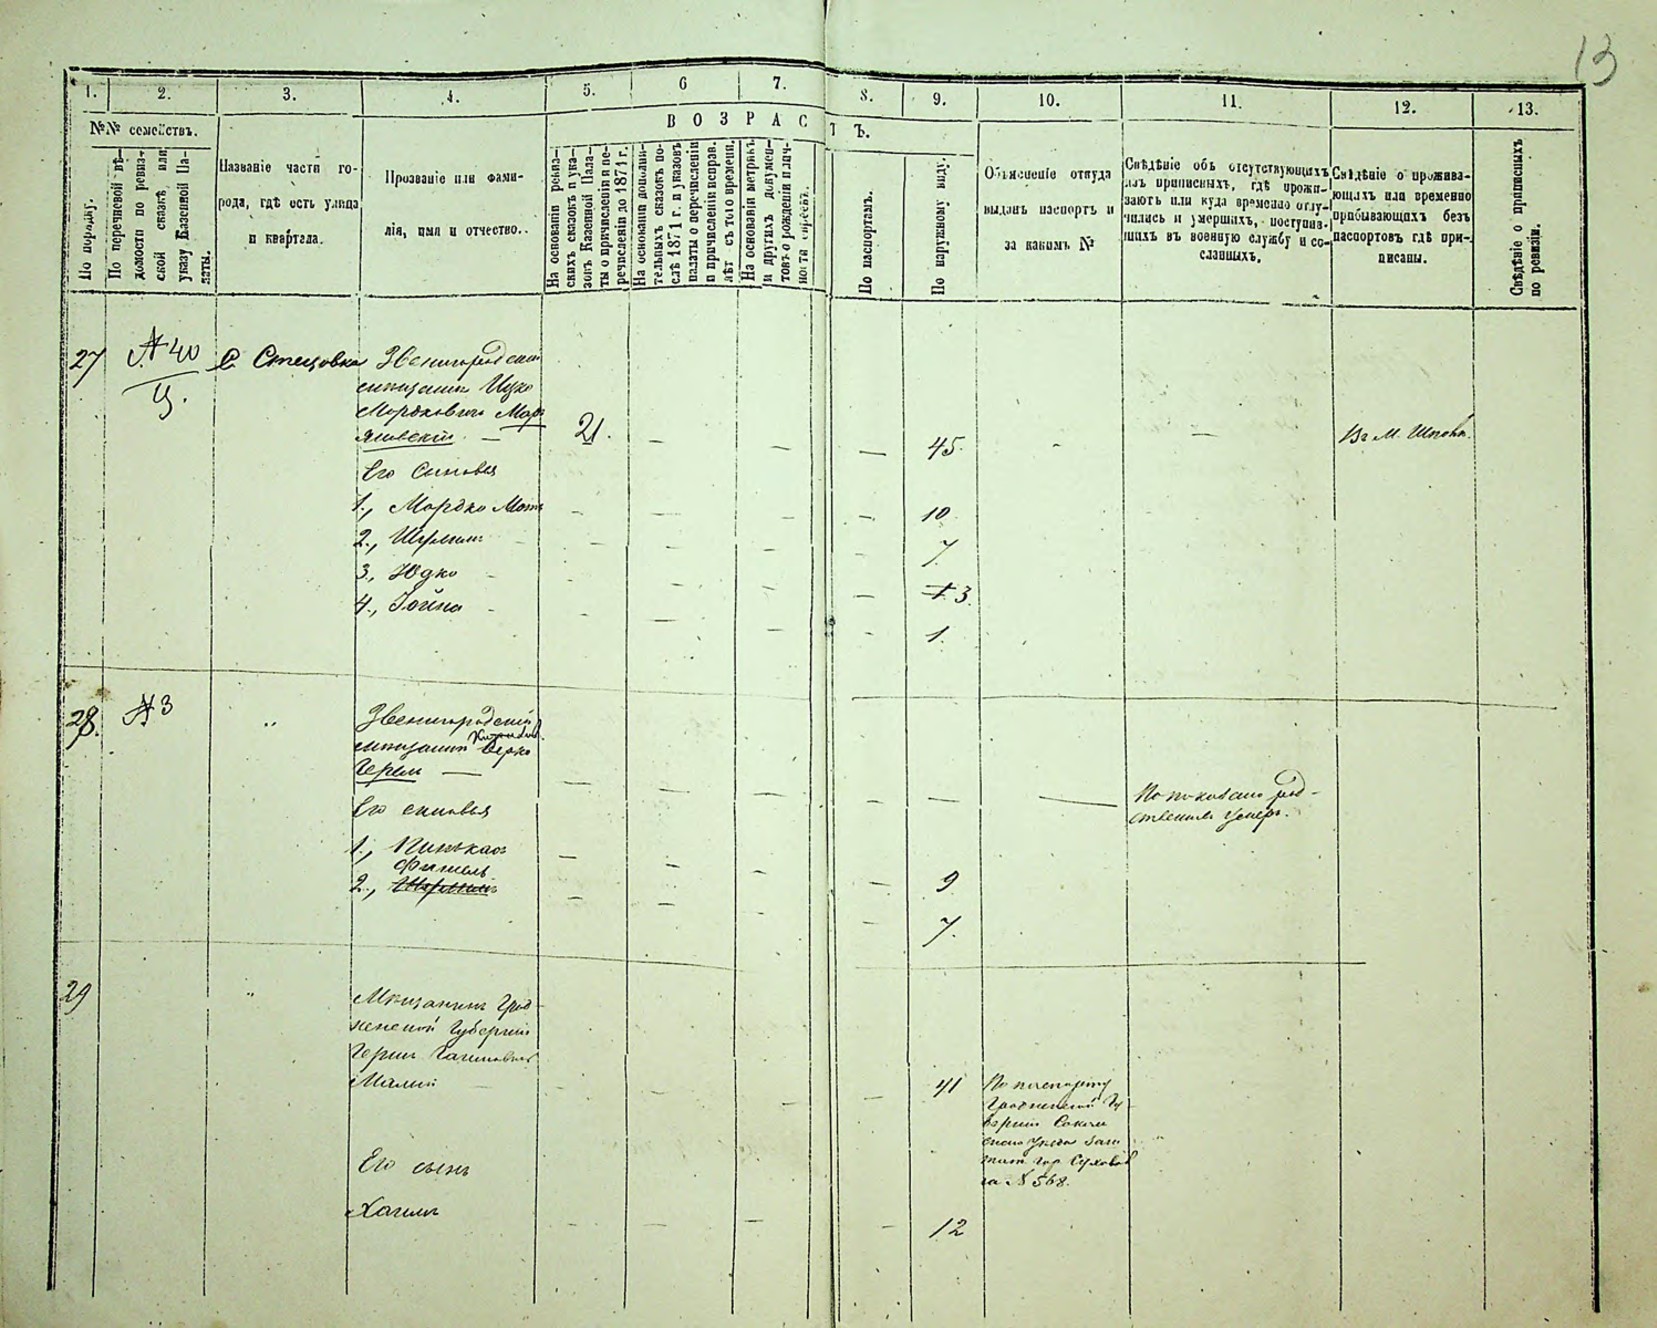 13
1. 2. 3. 4. 5. 6 7. 8. 9. 10. 11. 12. 13.
№№ семействъ.
В О З Р А С Т Ъ.
По порядку.
По перечневой вѣ-
домости по ревиз-
ской сказкѣ или
указу Казенной Па-
латы.
Названіе части го-
рода, гдѣ есть улица
и квартала.
Прозваніе или фами-
лія, имя и отчество.
На основаніи ревиз-
скихъ сказокъ и ука-
зовъ Казенной Пала-
ты о причисленіи и пе-
речисленіи до 1871 г.
На основаніи дополни-
тельныхъ сказокъ по-
слѣ 1871 г. и указовъ
палаты о перечисленіи
и причисленіи исправ.
лѣт съ того времени.
На основаніи метрикъ
и другихъ докумен-
товъ о рожденіи и лич-
ности
По паспортамъ.
По наружному виду.
Объясненіе откуда
выданъ паспортъ и
за какимъ №
Свѣдѣніе объ отсутствующихъ
изъ приписныхъ, гдѣ прожи-
заютъ или куда временно отлу-
чились и умершихъ, поступив-
шихъ въ военную службу и со-
сланныхъ.
Свѣдѣніе о прожива-
ющихъ или временно
прибывающихъ безъ
паспортовъ гдѣ при-
писаны.
Свѣдѣніе о приписныхъ
по ревизіи.
27 № 40 С. Стецовка Звенигородскій
мѣщанинъ Ицко
Мордковичъ Мар-
21. — — — 45. - — Въ М. Шпола.
Его сыновья
1., Мордко - — — — 10.
2., Шулимъ - — — - 7.
3., Юдко - — — — 1 3.
4., Іойна - — — - 1.
28. № 3 " Звенигородскій
мѣщанинъ Берко
— — — - — — По показанію род-
ственниковъ умеръ.
Его сыновья
1., Пинькасъ — — — — 9
Фишель
2., Шулимъ — — - - 7.
29 " Мѣщанинъ Грод-
ненской Губерніи
Герш
Малый - — — 41 По паспорту
Гродненской Гу-
берніи
уѣзда
за № 568.
Его сынъ
Хаимъ - — — - 12